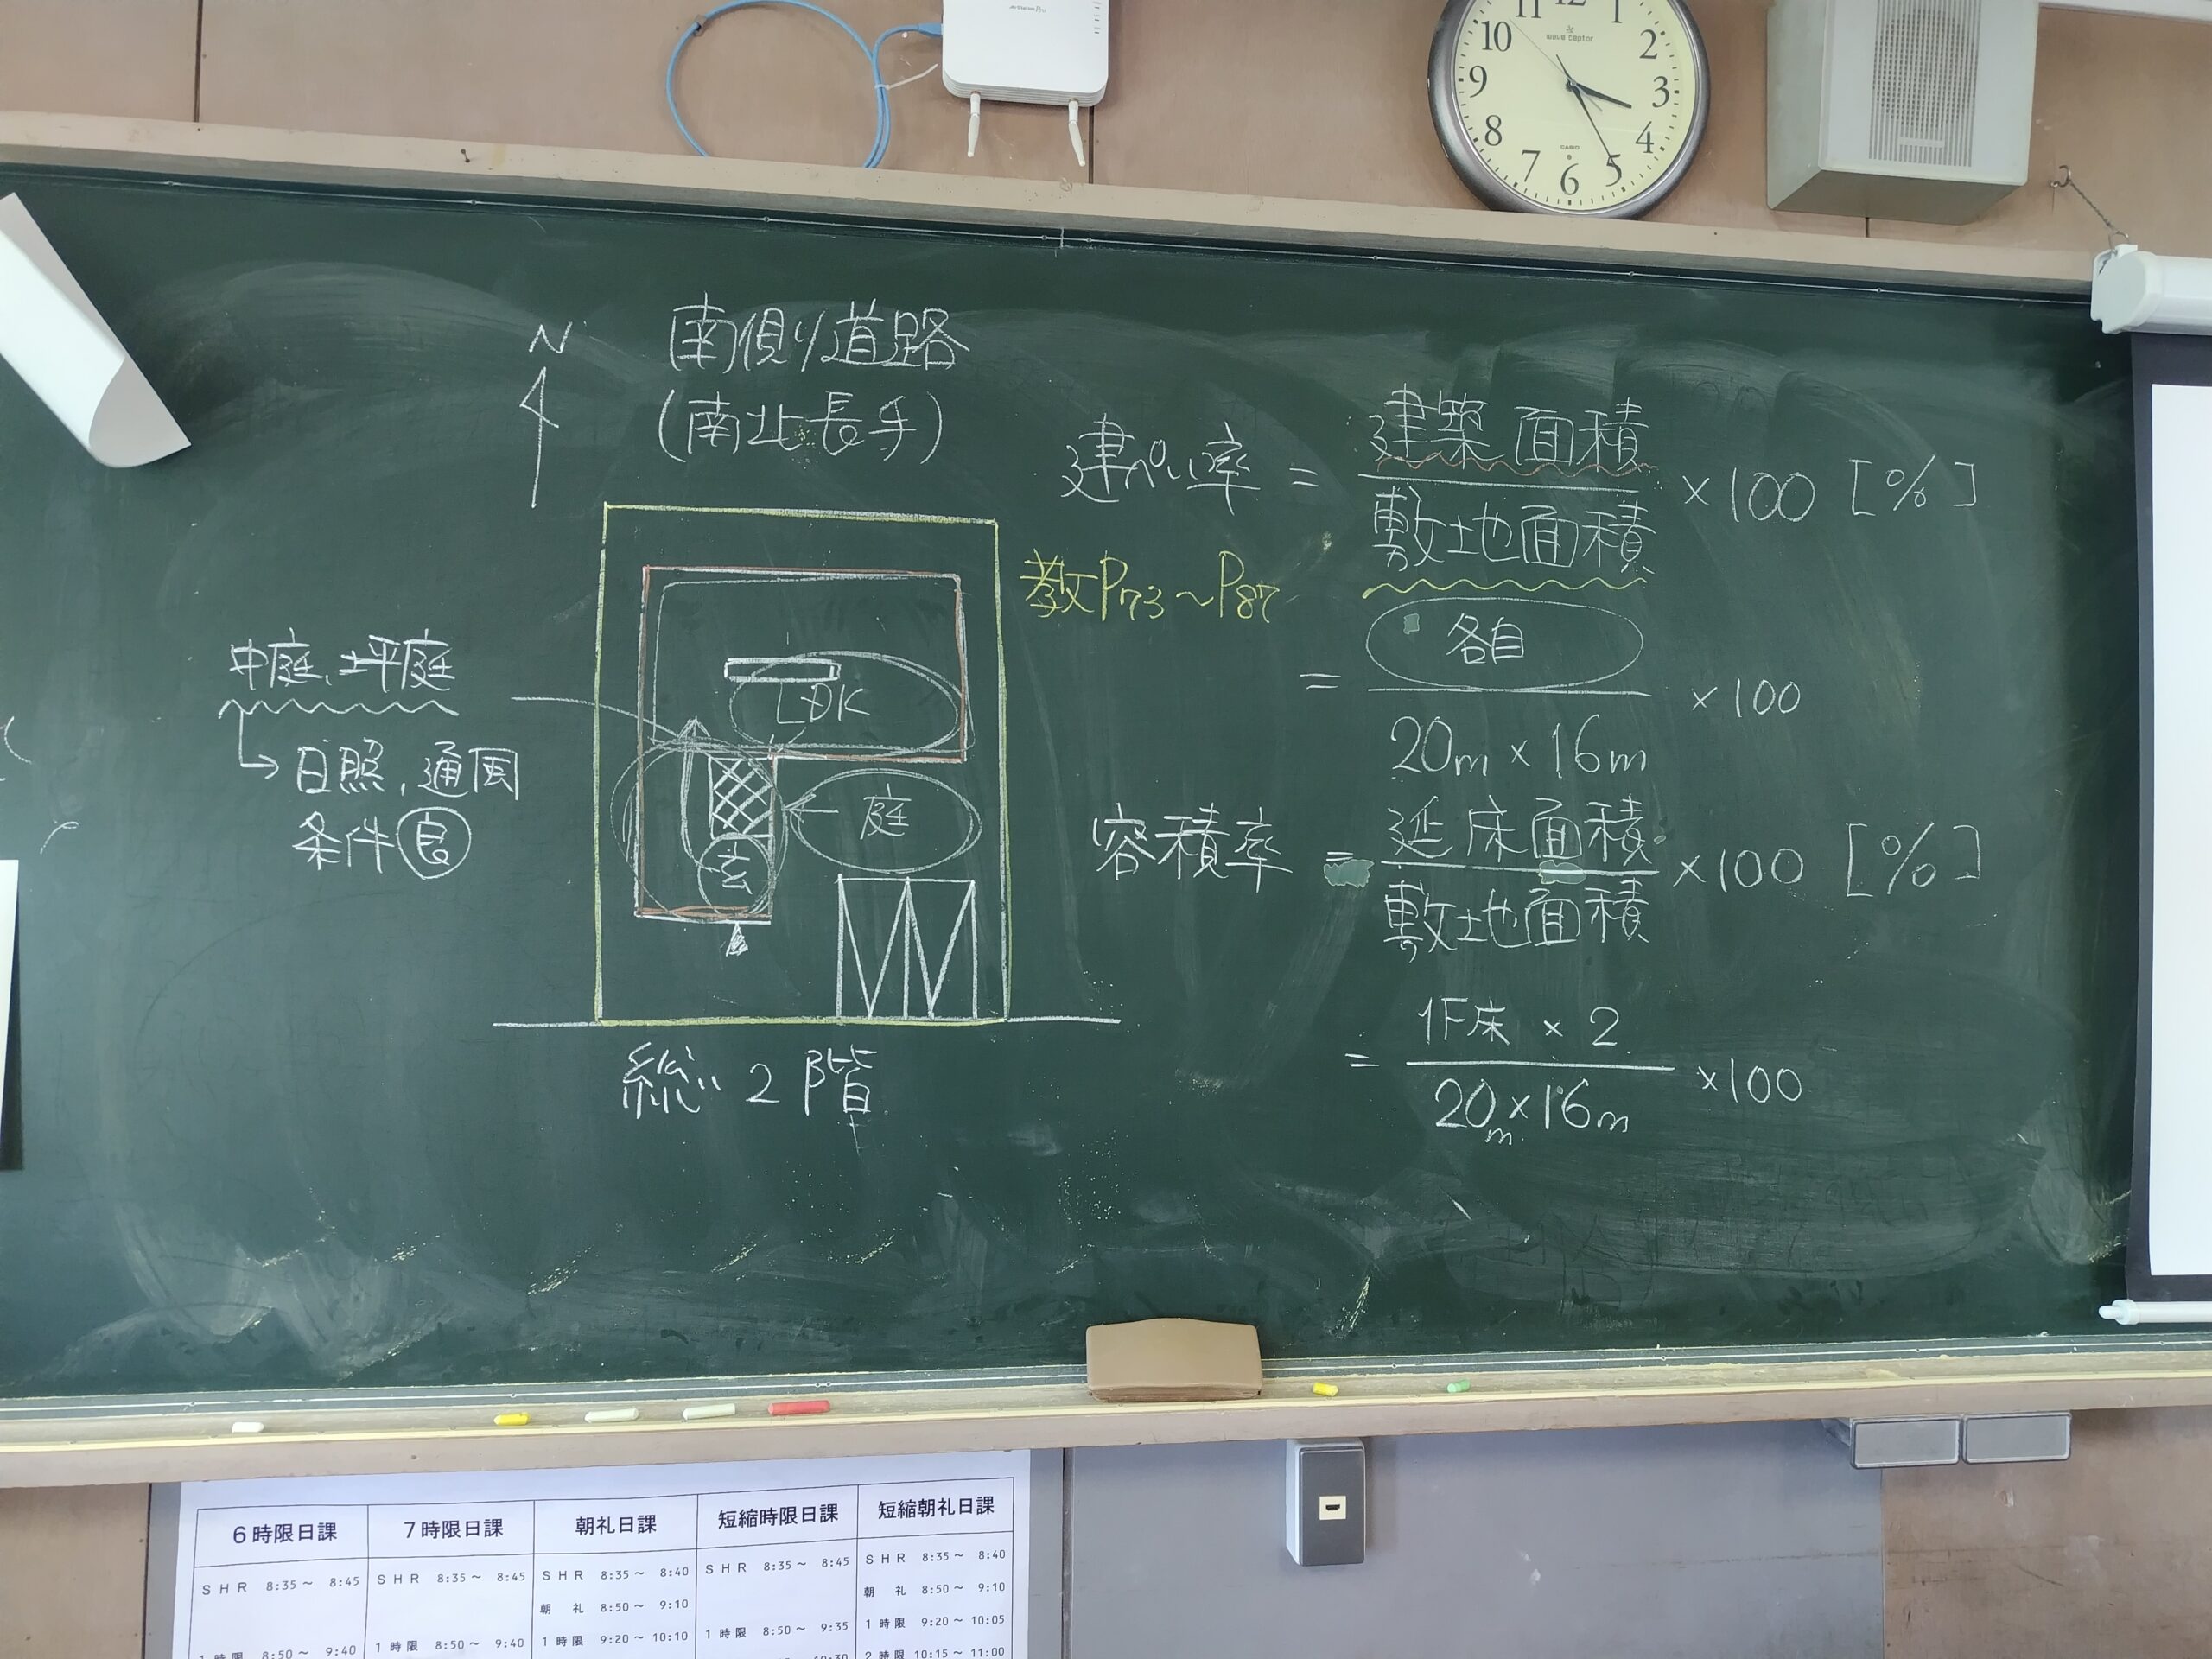 11 12 1
10 2
9 3
8 4
7 6 5
wave ceptor
CASIO
N
南側道路
(南北長手)
建ぺい率 = 建築面積 / 敷地面積 ×100 [%]
教P73~P87
= 各自 / 20m×16m ×100
中庭、坪庭
日照,通風
条件良
LDK
庭
玄
容積率 = 延床面積 / 敷地面積 ×100 [%]
= 1F床×2 / 20m×16m ×100
総2階
6時限日課 7時限日課 朝礼日課 短縮時限日課 短縮朝礼日課
SHR 8:35~ 8:45 SHR 8:35~ 8:45 SHR 8:35~ 8:40 SHR 8:35~ 8:45 SHR 8:35~ 8:40
朝 礼 8:50~ 9:10 朝 礼 8:50~ 9:10
1時限 8:50~ 9:40 1時限 8:50~ 9:40 1時限 9:20~10:10 1時限 8:50~ 9:35 1時限 9:20~10:05
2時限 10:15~11:00